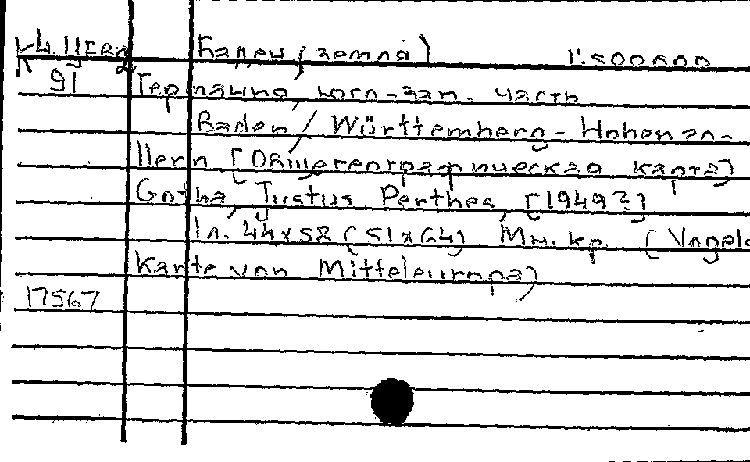 Баден (земля) 1:500000
91 Германия, юго-зап. часть
Baden / Württemberg - Hohenzo-
llern [Общегеографическая карта]
Gotha, Justus Perthes, [1949?]
1 л. 44x58 (51x64) Мн. кр. (Vogels
Karte von Mitteleuropa)
17567